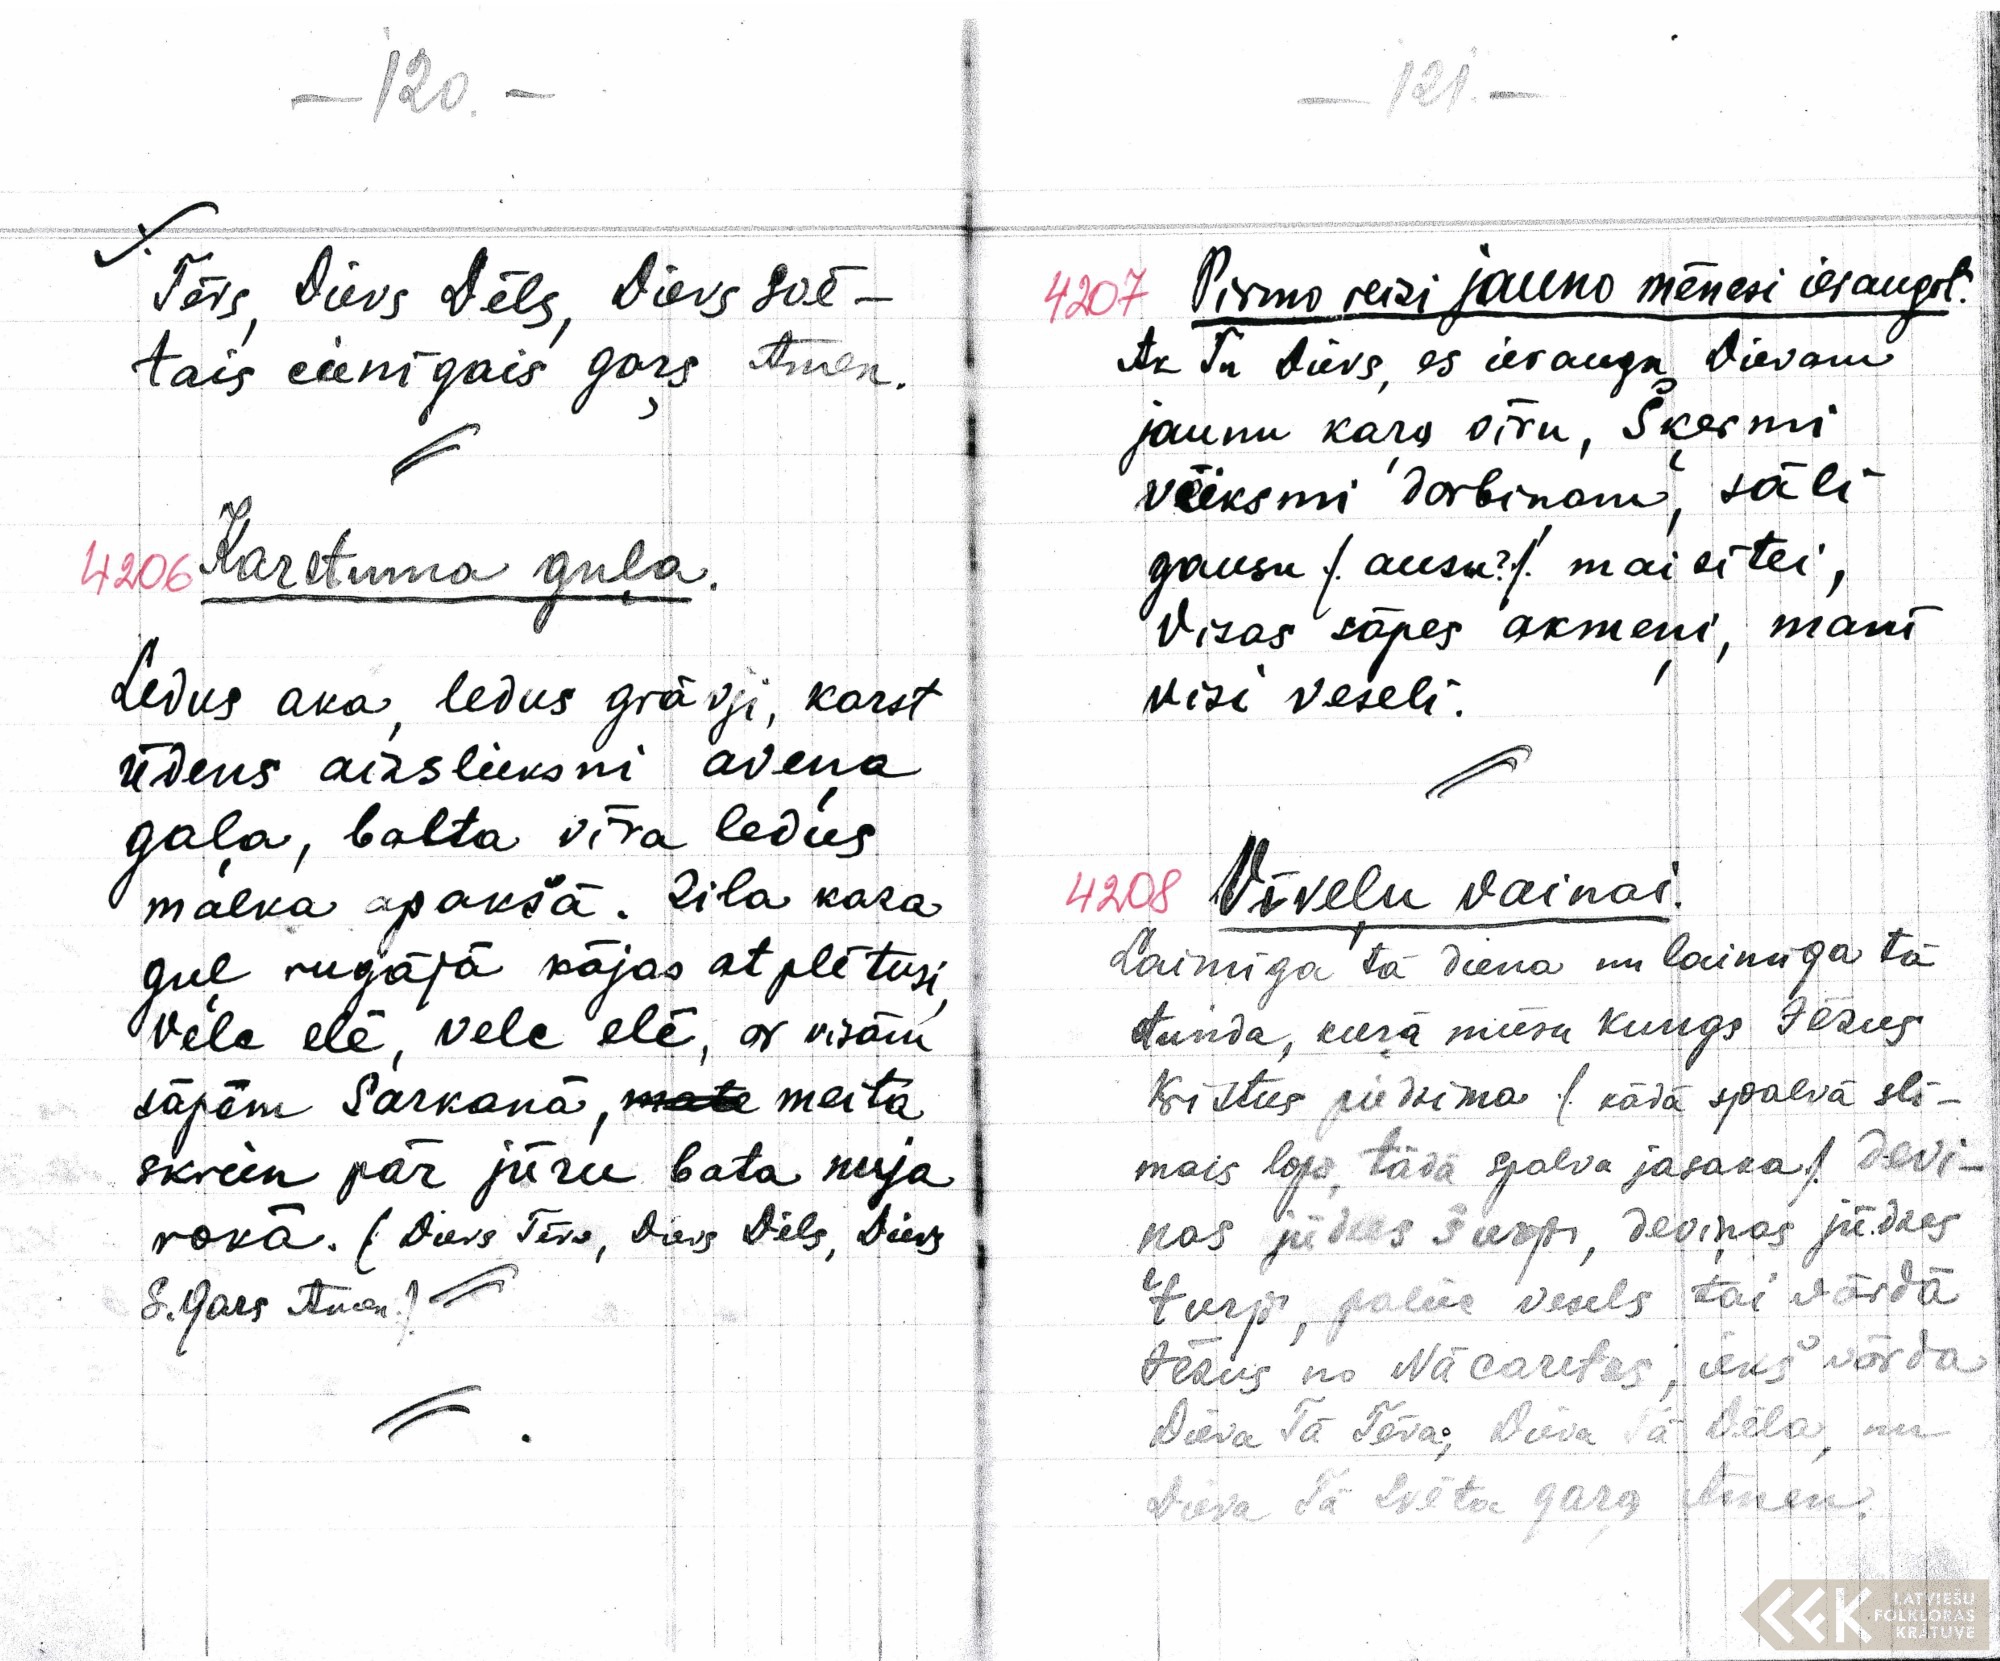 — 120. —
Tēvs, Dievs Dēls, Dievs svē-
tais cienīgais gars Amen.
4206 Karstuma guļa.
Ledus aka, ledus grāvji, karst
ūdens aizslieksni aveņa
gaļa, balta vīra ledus
malka apakšā. Zila kaza
guļ rugājā kājas atplētusi,
vēle elē, vele elē, ar visām
sāpēm Sarkanā, meita
skrien pār jūru bata nuja
rokā. (Dievs Tēvs, Dievs Dēls, Dievs
S. Gars Amen.)
— 121. —
4207 Pirmo reizi jauno mēnesi ieraugot.
Ak Tu Dievs, es ieraugu Dievam
jaunu kaŗa vīru, Šķesmi
vēiksmi darbinam, sāli
gausu /. ausu? /. mai sitei,
Visas sāpes akmeņi, mani
visi veseli.
4208 Vīveļu vainai.
Laimīga tā diena un laimīga tā
stunda, kurā mūsu Kungs Jēzus
Kristus piedzima /. kādā spalvā sli-
mais lops, tādā spalva jasaka /. devi-
ņas jūdzes šurp, deviņas jūdzes
turp, paliec vesels tai vārdā
Jēzus no Nācaretes, iekš vārda
Dieva Tā Tēva, Dieva Tā Dēla, un
Dieva Tā Svēta gara Amen.
LATVIEŠU
FOLKLORAS
KRĀTUVE